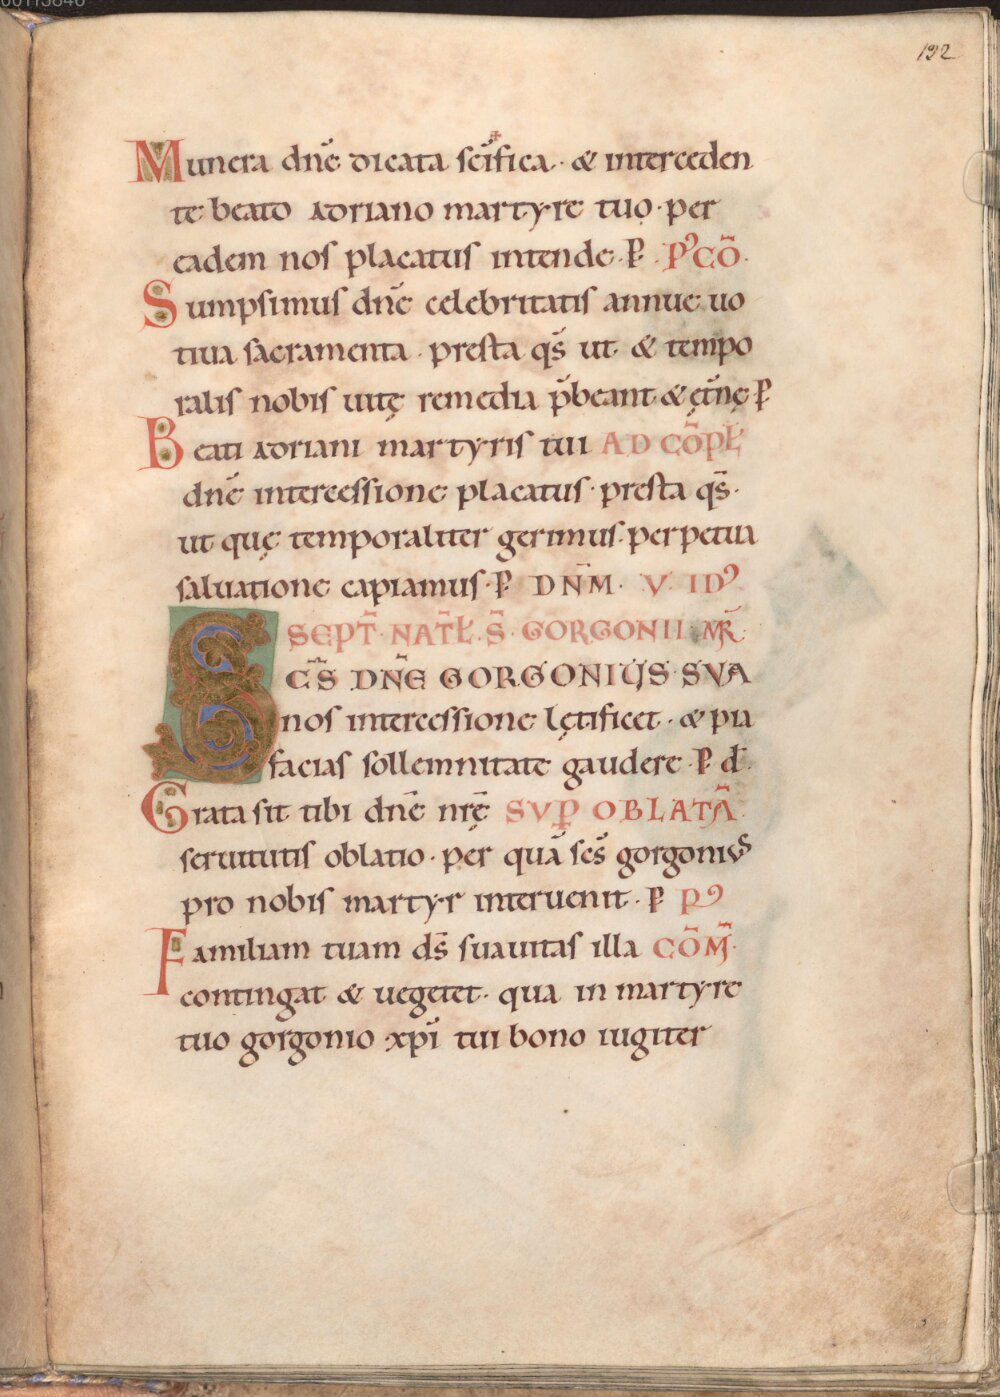 192
Munera dn̄e dicata sc̄ifica · & interceden
te beato adriano martyre tuo · per
eadem nos placatus intende · P̄ · Pꝰ CŌ ·
Sumpsimus dn̄e celebritatis annue uo
tiua sacramenta · presta qs̄ ut & tempo
ralis nobis uitę remedia p̄beant & ęt̄nę P̄
Beati adriani martyris tui AD CŌPŁ
dn̄e intercessione placatus · presta qs̄ ·
ut quę temporaliter gerimus · perpetua
saluatione capiamus · P̄ DN̄M · V · IDꝰ
SEPT̄ · NAT̄Ł · S̄ · GORGONII · MR̄ ·
SC̄S DN̄E GORGONIUS SVA
nos intercessione lętificet · & pia
facias sollemnitate gaudere · P̄ d̄ ·
Grata sit tibi dn̄e nr̄ę SVP̄ OBLATĀ ·
seruitutis oblatio · per quā sc̄s gorgonius
pro nobis martyr interuenit · P̄ Pꝰ
Familiam tuam ds̄ suauitas illa CŌM̄ ·
contingat & uegetet · qua in martyre
tuo gorgonio xp̄i tui bono iugiter